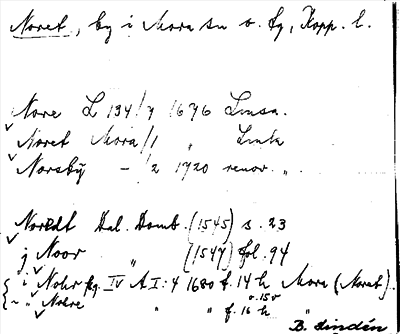 Noret, by i Mora sn o. fg, Kopp. l.
Nore L 134/7 1696 Lmsa.
Noret Mora/1 " Lmtk
Norsby - /2 1920 renov. "
Noredt Dal. Domb. (1545) s. 23
j Noor " (1547) fol. 94
i Nohr fg. IV A I:4 1680 f. 14 h Mora (Noret).
" Nohre " " f. 16 h "
B. Lindén